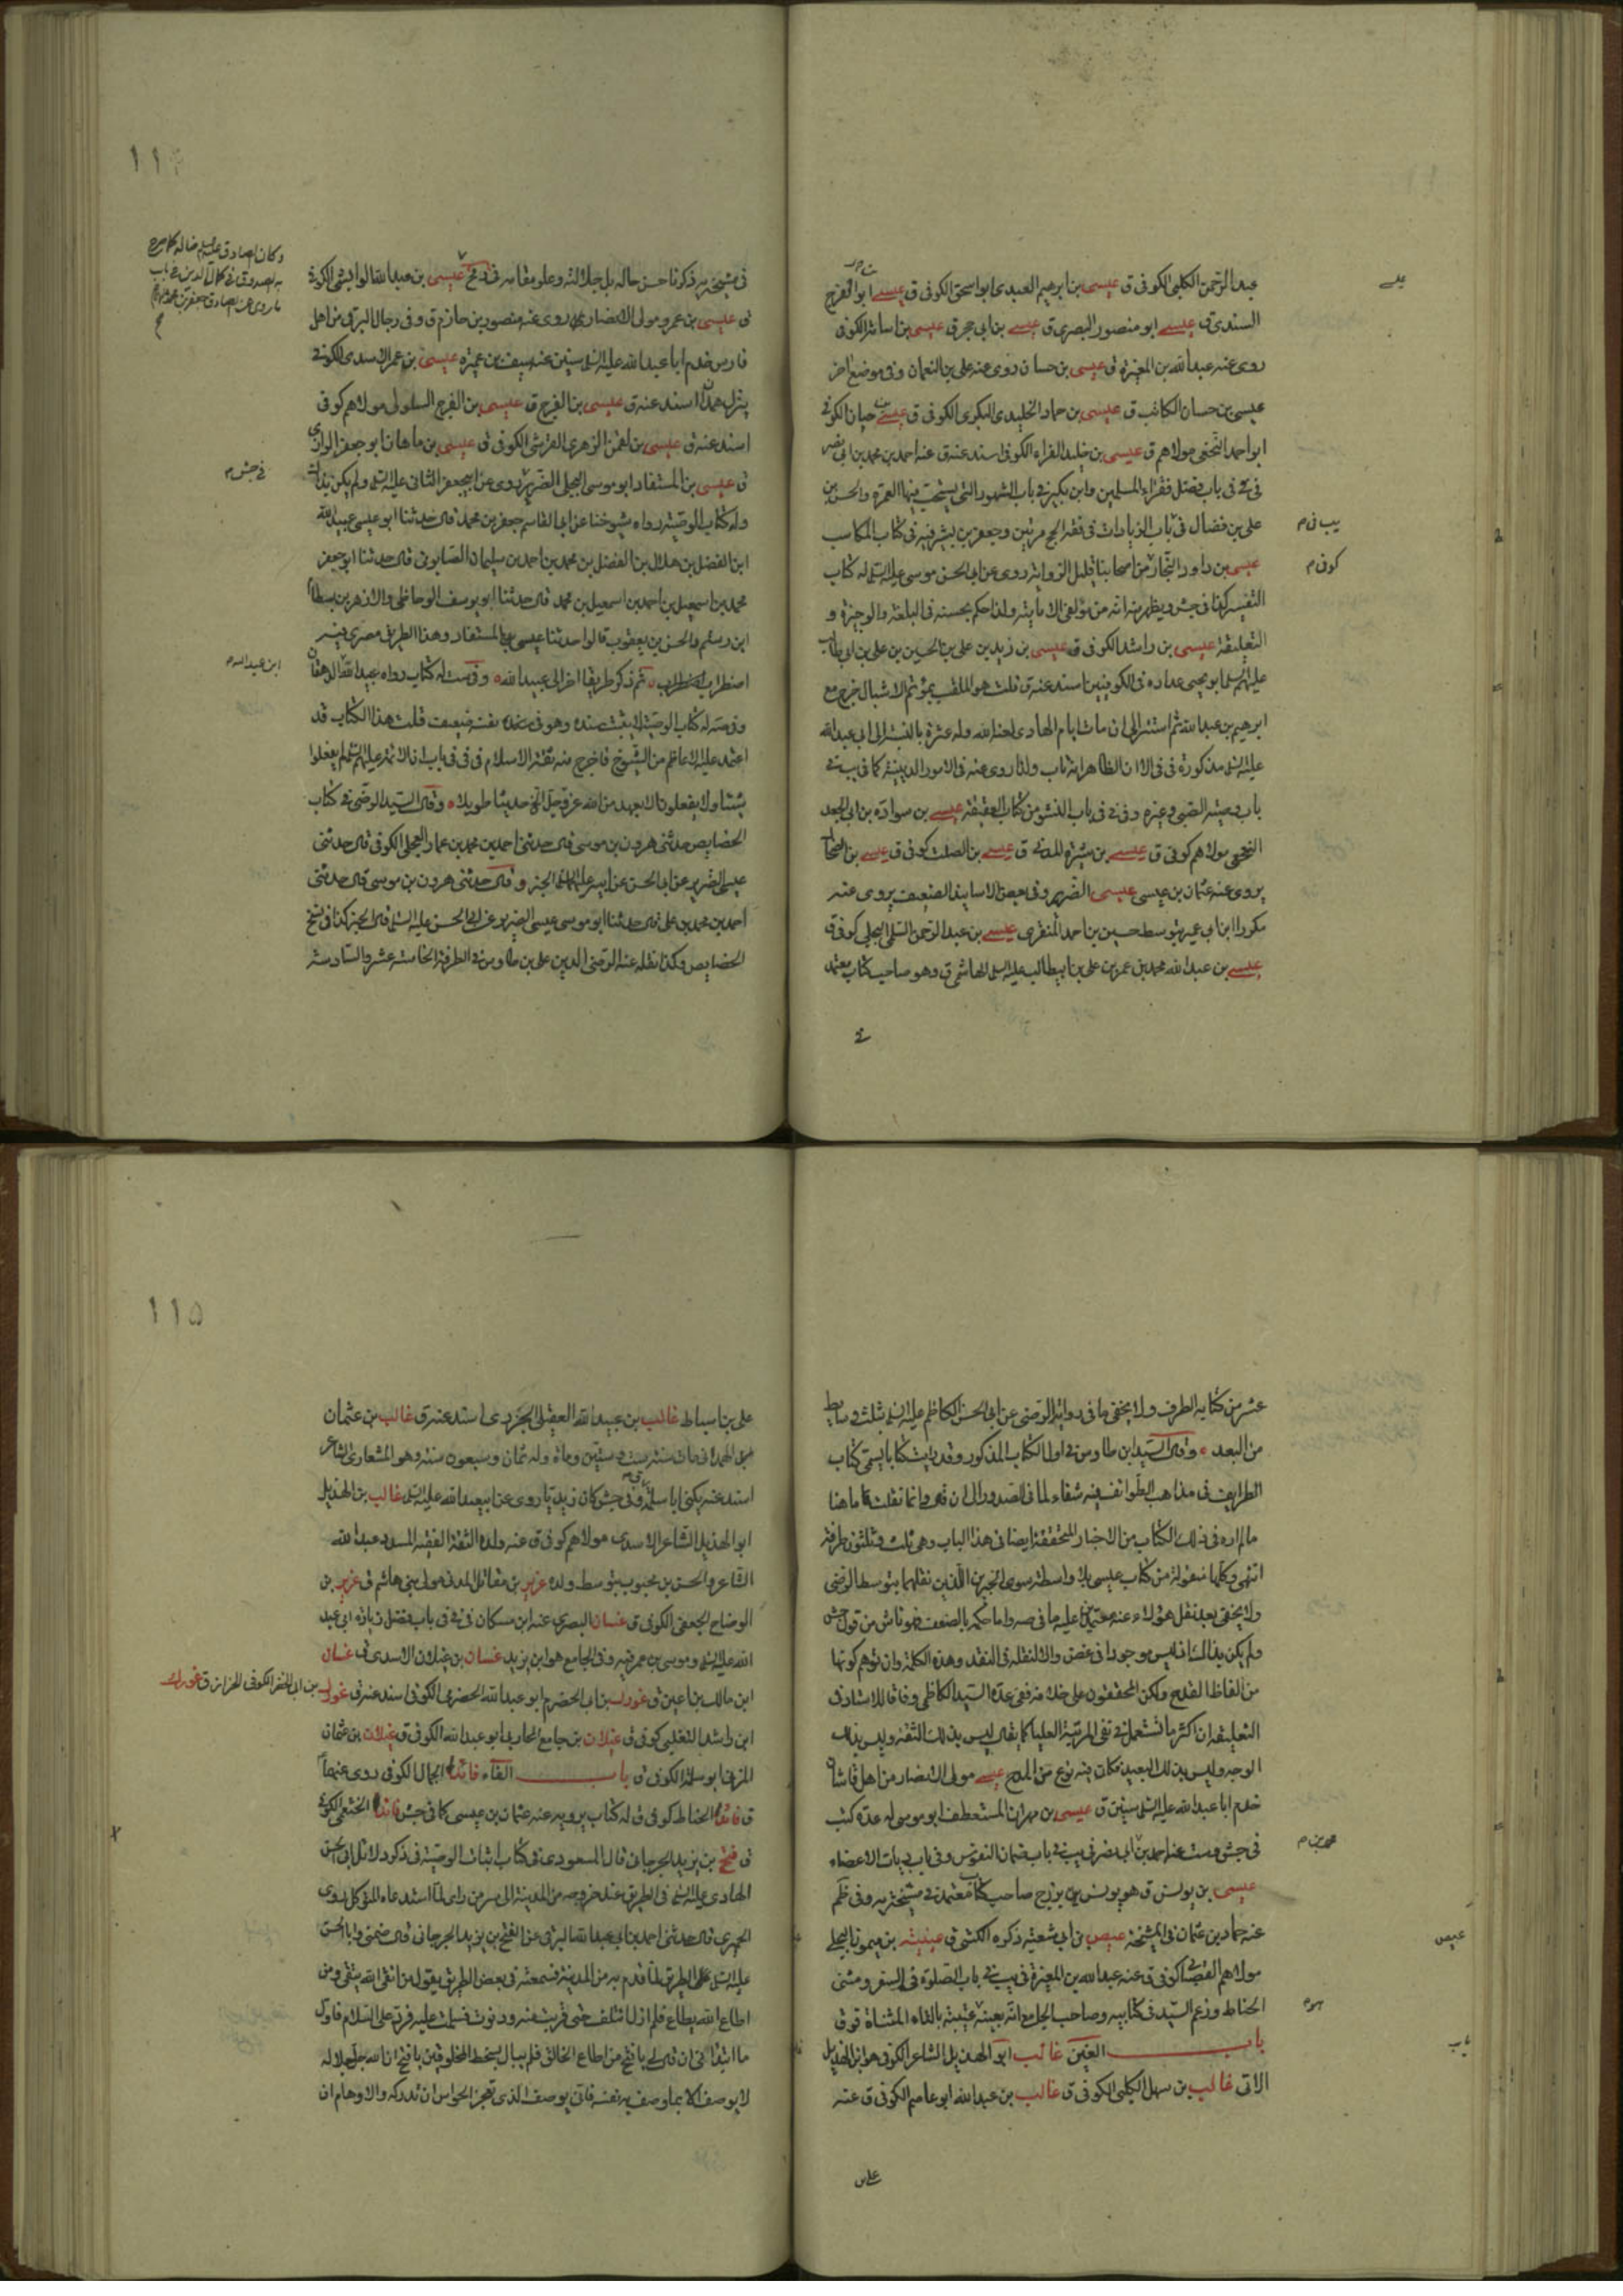 عبد الرحمن الكلبي الكوفي ق عيسى بن ابرهيم العبدي ابو اسحق الكوفي ق عيسى ابو الفرج
السندي ق عيسى ابو منصور البصري ق عيسى بن ابي حجر ق عيسى بن اسامة الكوفي
روى عنه عبد الله بن المغيرة ق عيسى بن حسان روى عنه علي بن النعمان وفي موضع اخر
عيسى بن حسان الكاتب ق عيسى بن حماد الخليدي اليكوي الكوفي ق عيسى بن حيان الكوفي
ابو احمد النخعي مولاهم ق عيسى بن خليد الفراء الكوفي اسند عنه ق عنه احمد بن محمد بن ابي نصر
في في باب فضل فقراء المسلمين وابن بكير في باب الشهور التي يستحب فيها العمرة والحسن بن
علي بن فضال في باب الزيادات في فقه الحج مرتين وجعفر بن بشير فيه في كتاب المكاسب
عيسى بن داود النجار من اصحابنا قليل الرواية روى عن ابي الحسن موسى عليه السلم له كتاب
التفسير كذا في جش ويظهر منه انه من مؤلفي الامامية ولذا حكم بحسنه في البلغة والوجيزة و
التعليقة عيسى بن راشد الكوفي ق عيسى بن زيد بن علي بن الحسين بن علي بن ابي طالب
عليهم السلم ابو يحيى عداده في الكوفيين اسند عنه ق قلت هو الملقب بموتم الاشبال خرج مع
ابرهيم بن عبد الله ثم استتر الى ان مات ايام الهادي لعنه الله وله عثرة بالنسبة الى ابي عبد الله
عليه السلم مذكورة في في الا ان الظاهر انه تاب ولذا روى عنه في الامور الدينية كما في يب في
باب وصية الصبي وغيره وفي في في باب النشو من كتاب العقيقة عيسى بن سوادة بن ابي الجعد
النخعي مولاهم كوفي ق عيسى بن شبرة المدني ق عيسى بن الصلت كوفي ق عيسى بن الضحاك
يروى عنه عثمان بن عيسى عيسى الضرير وفي بعض الاسانيد الضعيف يروى عنه
مكررا ابن ابي عمير بتوسط حسين بن احمد المنقري عيسى بن عبد الرحمن السلمي البجلي كوفي ق
عيسى بن عبد الله محمد بن عمر بن علي بن ابيطالب عليه السلم الهاشمي ق وهو صاحب كتاب معتمد
في
يب في م
كوفي م
١١٤
في مشيخة يه ذكرنا حسن حاله بل جلالته وعلو مقامه في عيسى بن عبد الله القرشي الكوفي
ق عيسى بن عمرو مولى الانصار ق روى عنه منصور بن حازم ق وفي رجال البرقي من اهل
فارس خدم ابا عبد الله عليه السلم سنين عنه سيف بن عميرة عيسى بن عمر الاسدي الكوفي
ينزل همدان اسند عنه ق عيسى بن الفرج ق عيسى بن الفرج السلولي مولاهم كوفي
اسند عنه ق عيسى بن لقمن الزهري القرشي الكوفي ق عيسى بن ماهان ابو جعفر الرازي
ق عيسى بن المستفاد ابو موسى البجلي الضرير روى عن ابيجعفر الثاني عليه السلم ولم يكن بذاك
وله كتاب الوصية رواه شيوخنا عن ابي القاسم جعفر بن محمد قال حدثنا ابو عيسى عبيد الله
ابن الفضل بن هلال بن الفضل بن محمد بن احمد بن سليمان الصابوني قال حدثنا ابو جعفر
محمد بن اسمعيل بن احمد بن اسمعيل بن محمد قال حدثنا ابو يوسف الوحاظي والازهر بن بسطام
ابن رستم والحسن بن يعقوب قالوا حدثنا عيسى بن المستفاد وهذا الطريق مصري فيه
اضطراب ثم ذكر طريقا اخر الى عبيد الله وفي ست له كتاب رواه عبيد الله الدهقان
وفي صه له كتاب الوصية لا يثبت سنده وهو في نفسه ضعيف قلت هذا الكتاب قد
اعتمد عليه الاعاظم من الشيوخ فاخرج منه ثقة الاسلام في في في باب ان الائمة عليهم السلم لم يفعلوا
شيئا ولا يفعلون الا بعهد من الله عز وجل الخ حديثا طويلا وقال السيد الرضي في كتاب
الخصايص حدثني هرون بن موسى قال حدثني احمد بن محمد بن عمار العجلي الكوفي قال حدثني
عيسى الضرير عن ابي الحسن عن ابيه عليهما السلم الخبر وقال حدثني هرون بن موسى قال حدثني
احمد بن محمد بن علي قال حدثنا ابو موسى عيسى الضرير عن ابي الحسن عليه السلم قال الخبر كذا في نسخ
الخصايص وكذا نقله عنه الرضي الدين علي بن طاوس في الطرفة الخامسة عشر والسادسة
في جش م
ابن عبد الله م
عشر من كتابه الطرف ولا يخفى ما في رواية الرضي عن ابي الحسن الكاظم عليه السلم بثلث وسايط
من البعد وقال السيد ابن طاوس في اول الكتاب المذكور وقد رايت كتابا يسمى كتاب
الطرايف في مذاهب الطوائف فيه شفاء لما في الصدور الى ان قال وانما نقلت ما هنا
ما لم اره في ذلك الكتاب من الاخبار المحققة ايضا في هذا الباب وهي ثلث وثلثون طرفة
انتهى وكلها منقولة من كتاب عيسى بلا واسطة سوى الخبرين اللذين نقلهما بتوسط الرضي
ولا يخفى بعد نقل هؤلاء عنه معتمدين عليه ما في صه واما حكمه بالضعف فهو ناش من قول جش
ولم يكن بذاك فانه ليس موجودا في غض والا لنقله في النقد وهذه الكلمة وان توهم كونها
من الفاظ القدح ولكن المحققون على خلافه فعن عدة السيد الكاظمي وفاقا للاستاد في
التعليقة ان اكثر ما تستعمل في نفي المرتبة العليا كما يقال ليس بذلك الثقة وليس بذلك
الوجه وليس بذلك البعيد فكان فيه نوع من المدح عيسى مولى الانصار من اهل قاشان
خدم ابا عبد الله عليه السلم سنين ق عيسى بن مهران المستعطف ابو موسى له عدة كتب
في جش وست عنه احمد بن ابي نصر في يب في باب ضمان النفوس وفي باب ديات الاعضاء
عيسى بن يونس ق هو يونس بن بزرج صاحب كتاب معتمد في مشيخة يه وفي حكم
عنه حماد بن عثمان في المشيخة عيص بن ابي شعبة ذكره الكشي ق عيينة بن ميمون البجلي
مولاهم القصباني كوفي ق عنه عبد الله بن المغيرة في يب في باب الصلوة في السفر ومثنى
الحناط وزعم السيد في كتابيه وصاحب الحاوي انه بعينه عتيبة بالتاء المثناة فوق
باب الغين غالب ابو الهذيل الشاعر الكوفي هو ابن الهذيل
الاتي غالب بن سهل الكلبي الكوفي ق غالب بن عبد الله ابو عامر الكوفي ق عنه
علي بن
محمد بن م
عيص
باب
١١٥
علي بن اسباط غالب بن عبيد الله العقيلي الجزري اسند عنه ق غالب بن عثمان
الهمداني مات سنة ست وستين ومائة وله ثمان وسبعون سنة وهو المشعاري الشاعر
اسند عنه يكنى ابا سلمة وفي جش كان زيديا روى عن ابيعبد الله عليه السلم غالب بن الهذيل
ابو الهذيل الشاعر الاسدي مولاهم كوفي ق عنه ولده الثقة الفقيه المسدد عبد الله
الشاعر والحسن بن محبوب بتوسط ولده غرير بن مقاتل المدني مولى بني هاشم ق غرير بن
الوضاح الجعفي الكوفي ق غسان البصري عنه ابن مسكان في في في باب فضل زيارة ابي عبد
الله عليه السلم وموسى بن عمر فيه وفي الجامع هو ابن يزيد غسان بن غيلان الاسدي ق غسان
ابن مالك بن اعين ق غورك بن ابي الحضرم ابو عبد الله الحضرمي الكوفي اسند عنه ق غورك بن ابي الخضر الكوفي الخزاز ق غورك
ابن راشد التغلبي كوفي ق غيلان بن جامع المحاربي ابو عبد الله الكوفي ق غيلان بن عثمان
المزني ابو سلمة الكوفي ق باب الفاء فائد الجمال الكوفي روى عنهما
ق فائد الحناط كوفي ق له كتاب يرويه عنه عثمان بن عيسى كما في جش فائد الخثعمي الكوفي
ق فتح بن يزيد الجرجاني قال المسعودي في كتاب اثبات الوصية في ذكر دلائل ابي الحسن
الهادي عليه السلم في الطريق عند خروجه من المدينة الى سر من راى لما استدعاه المتوكل روى
الحميري قال حدثني احمد بن ابي عبد الله البرقي عن الفتح بن يزيد الجرجاني قال ضمني وابا الحسن
عليه السلم الطريق لما قدم به من المدينة فسمعته في بعض الطريق يقول من اتقى الله يتقى ومن
اطاع الله يطاع فلم ازل ائتلف حتى قربت منه ودنوت فسلمت عليه فرد علي السلام فاول
ما ابتداني ان قال لي يا فتح من اطاع الخالق فلم يبال بسخط المخلوقين يا فتح ان الله جل جلاله
لا يوصف الا بما وصف به نفسه فانى يوصف الذي تعجز الحواس ان تدركه والاوهام ان